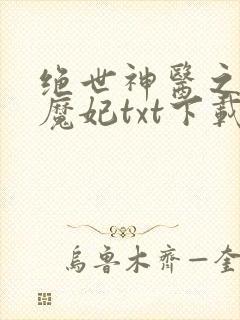 绝世神醫之
魔妃txt下載
烏魯木齊—奎